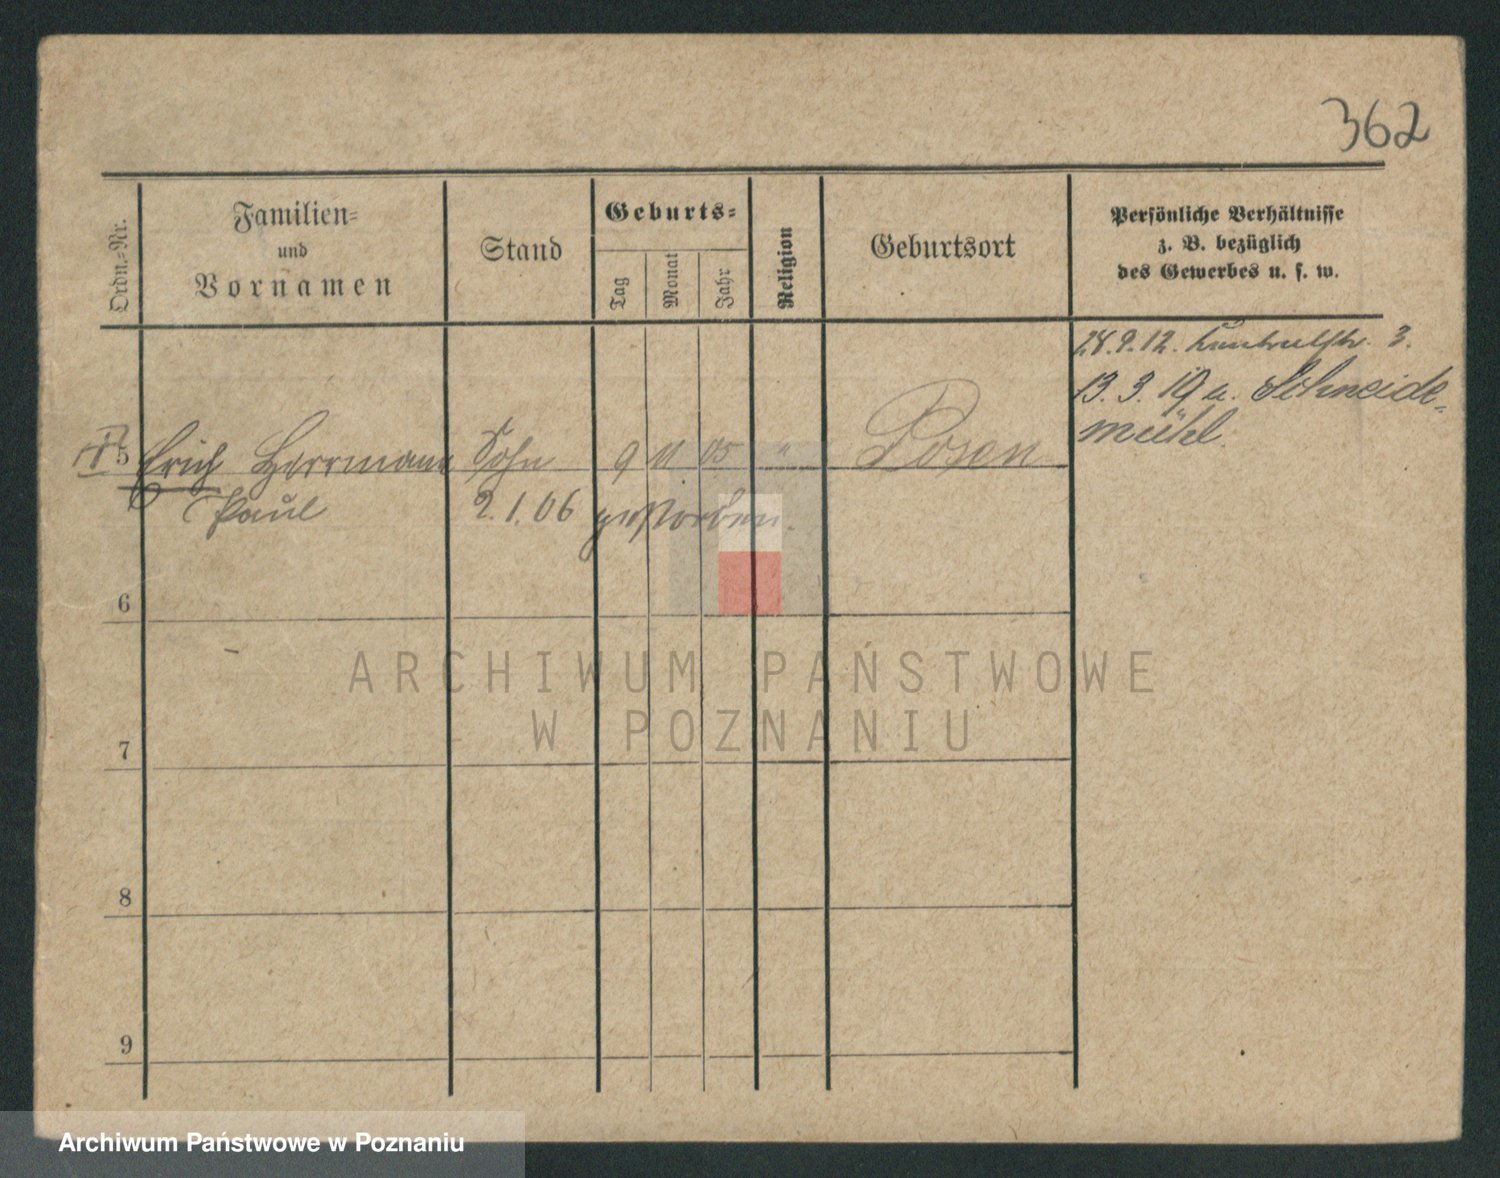 362
Ordn.-Nr.
Familien-
und
Vornamen
Stand
Geburts-
Tag
Monat
Jahr
Religion
Geburtsort
Persönliche Verhältnisse
z. B. bezüglich
des Gewerbes u. s. w.
28.9.12. 3.
13. 3. 19 a. Schneide-
mühl.
5 Erich Herrmann Sohn 9 11 05 " Posen
Paul 2.1.06 gestorben.
6
7
8
9
ARCHIWUM PAŃSTWOWE
W POZNANIU
Archiwum Państwowe w Poznaniu